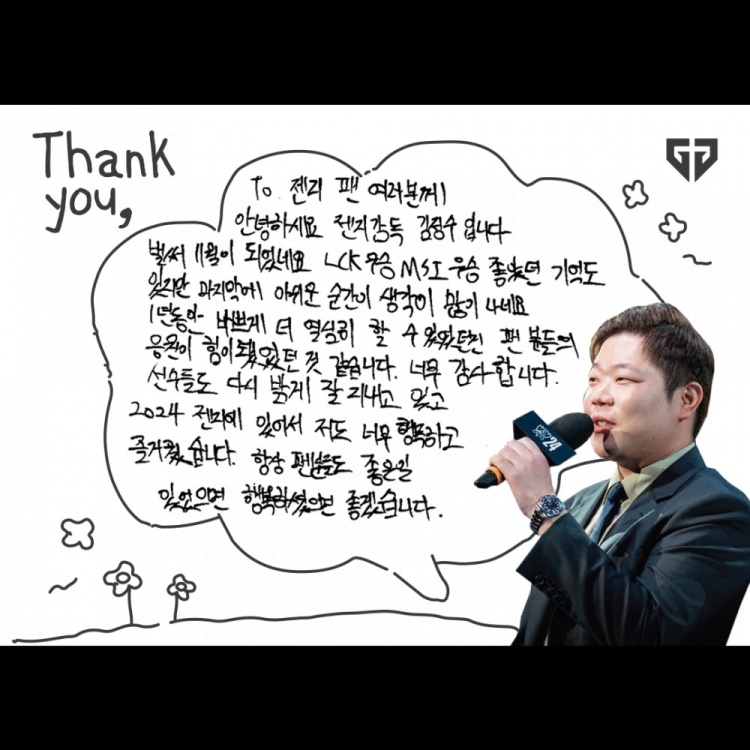 Thank
you,
To. 젠지 팬 여러분께!
안녕하세요 젠지감독 김정수 입니다
벌써 11월이 되었네요 LCK우승 MSI 우승 좋았던 기억도
있지만 마지막에 아쉬운 순간이 생각이 많이 나네요
1년동안 바쁘게 더 열심히 할 수 있었던건 팬 분들의
응원이 힘이 됐었던 것 같습니다. 너무 감사합니다.
선수들도 다시 밝게 잘 지내고 있고
2024 젠지에 있어서 저도 너무 행복하고
즐거웠습니다. 항상 팬분들도 좋은일
있었으면 행복하셨으면 좋겠습니다.
24